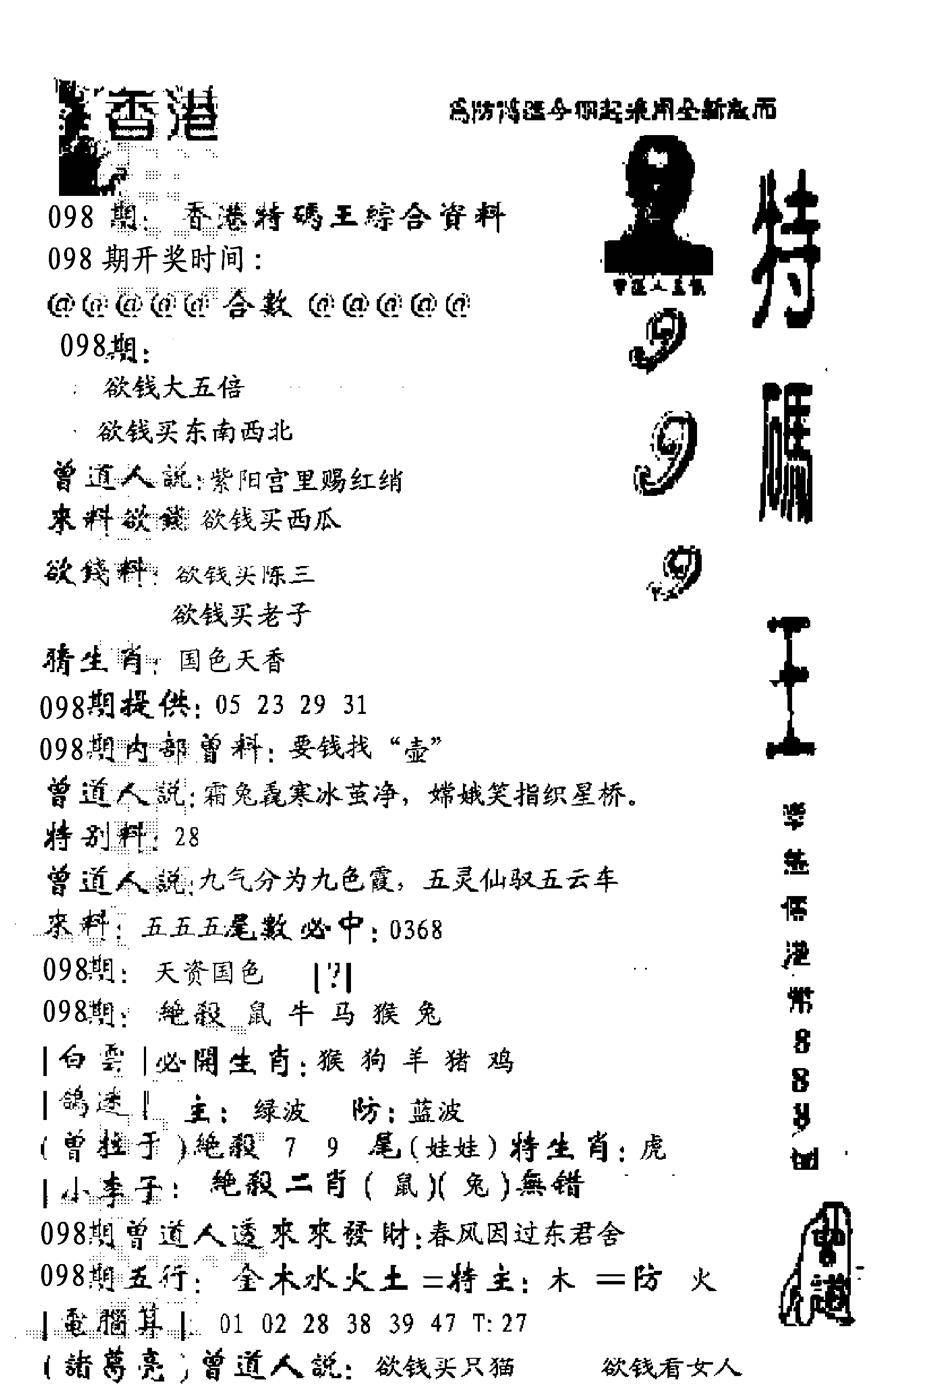 香港
098期：香港特碼王綜合資料
098期开奖时间：
@@@@@合數@@@@@
098期：
欲钱大五倍
欲钱买东南西北
曾道人説：紫阳宫里赐红绡
來料欲錢 欲钱买西瓜
欲錢料：欲钱买陈三
欲钱买老子
猜生肖：国色天香
098期提供：05 23 29 31
098期内部曾料：要钱找“壶”
曾道人説：霜兔毳寒冰茧净，嫦娥笑指织星桥。
特别料：28
曾道人説：九气分为九色霞，五灵仙驭五云车
來料：五五五尾數必中：0368
098期：天资国色 |?|
098期：絶殺 鼠 牛 马 猴 兔
|白雲|必開生肖：猴 狗 羊 猪 鸡
|鴿透| 主：绿波 防：蓝波
(曾 于)絶殺 7 9 尾(娃娃)特生肖：虎
|小李子：絶殺二肖(鼠)(兔)無错
098期曾道人透來來發財：春风因过东君舍
098期五行：金木水火土=特主：木=防 火
|電腦算| 01 02 28 38 39 47 T:27
(諸葛亮)曾道人説：欲钱买只猫 欲钱看女人
為防 今期起采用全新版面
9
9
9
特碼王
港幣888
曾道